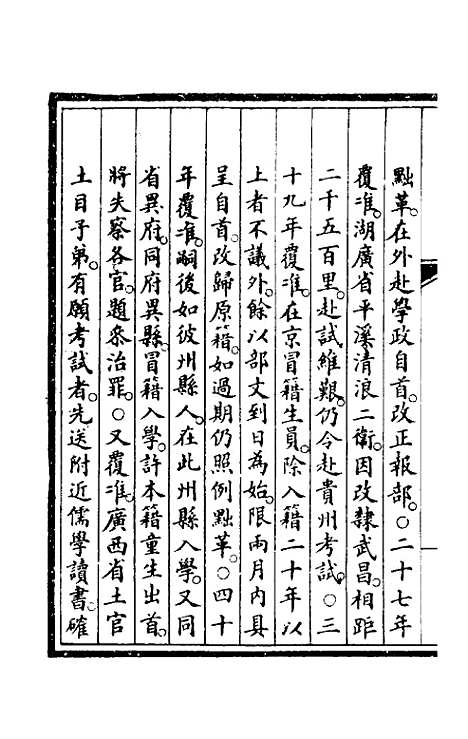 黜革。在外赴學政自首。改正報部。○二十七年
覆准。湖廣省平溪清浪二衛。因改隸武昌。相距
二千五百里。赴試維艱。仍令赴貴州考試。○三
十九年覆准。在京冒籍生員。除入籍二十年以
上者不議外。餘以部文到日為始。限兩月內具
呈自首。改歸原籍。如過期仍照例黜革。○四十
年覆准。嗣後如彼州縣人。在此州縣入學。又同
省異府。同府異縣。冒籍入學。許本籍童生出首。
將失察各官。題參治罪。○又覆准。廣西省土官
土目子弟。有願考試者。先送附近儒學讀書。確